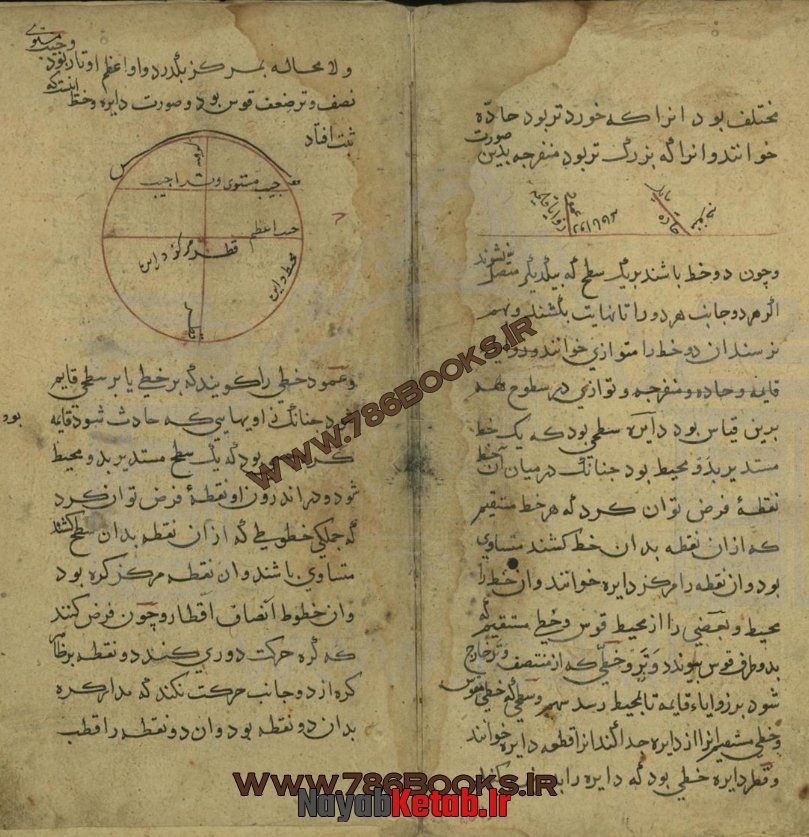 مختلف بود انرا که خوردتر بود حاده
خوانند و انرا که بزرگ تر بود منفرجه بدین
صورت
منفرجه
حاده
عمود
زوایا قایمه
و چون دو خط باشند بر یک سطح که بیکدیگر متصل نشوند
اگر هر دو جانب هر دو را تا نهایت بکشند و بهم
نرسند ان دو خط را متوازی خوانند و زوایا
قایمه و حاده و منفرجه و توازی در سطوح هم
برین قیاس بود دایره سطحی بود که یک خط
مستدیر بدو محیط بود چنانک درمیان آن خط
نقطهٔ فرض توان کرد که هر خط مستقیم
که از ان نقطه بدان خط کشند متساوی
بود و ان نقطه را مرکز دایره خوانند و ان خط را
محیط و بعضی را از محیط قوس و خط مستقیم که
بدو طرف قوس پیوندد وتر و خطی که از منتصف وتر خارج
شود بر زوایاء قایمه تا بمحیط رسد سهم و سطحی که خطی قوس
و خطی مستقیم انرا از دایره جدا کند انرا قطعه دایره خوانند
و قطر دایره خطی بود که دایره را بدو
و جیب مستوی
ولا محاله بمرکز بگذرد و او اعظم اوتار بود
نصف وتر ضعف قوس بود و صورت دایره و خط اینست که
ثبت افتاد
قوس
سهم
جیب مستوی وتر ا جیب
جیب اعظم
قطر مرکز دایره
محیط دایره
قطر
و عمود خطی را کویند که بر خطی یا بر سطحی قایم
شود چنانک زاویهایی که حادث شود قایمه بود
کره بود که یک سطح مستدیر بدو محیط
شود و در اندرون او نقطهٔ فرض توان کرد
که جملکی خطوطی که از ان نقطه بدان سطح کشند
متساوی باشند و ان نقطه مرکز کره بود
و ان خطوط انصاف اقطار و چون فرض کنند
که کره حرکت دوری کند دو نقطه بر ظاهر
کره از دو جانب حرکت نکند که مدار کره
بدان دو نقطه بود و ان دو نقطه را قطب
www.786Books.IR
www.786Books.IR
NayabKetab.Ir